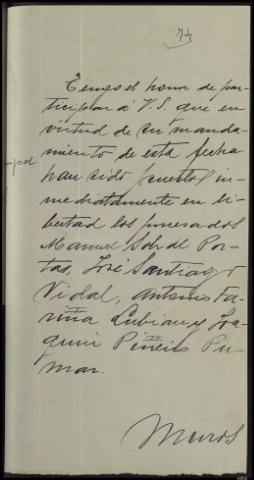 74
Tengo el honor de par-
ticipar á V. S. que en
virtud de su manda-
miento de esta fecha
han sido puestos in-
mediatamente en li-
bertad los procesados
Manuel Sob del Por-
tas, José Santiago
Vidal, Antonio Fa-
riña Lubian y Joa-
quin Piñeiro Pu-
mar.
Muros